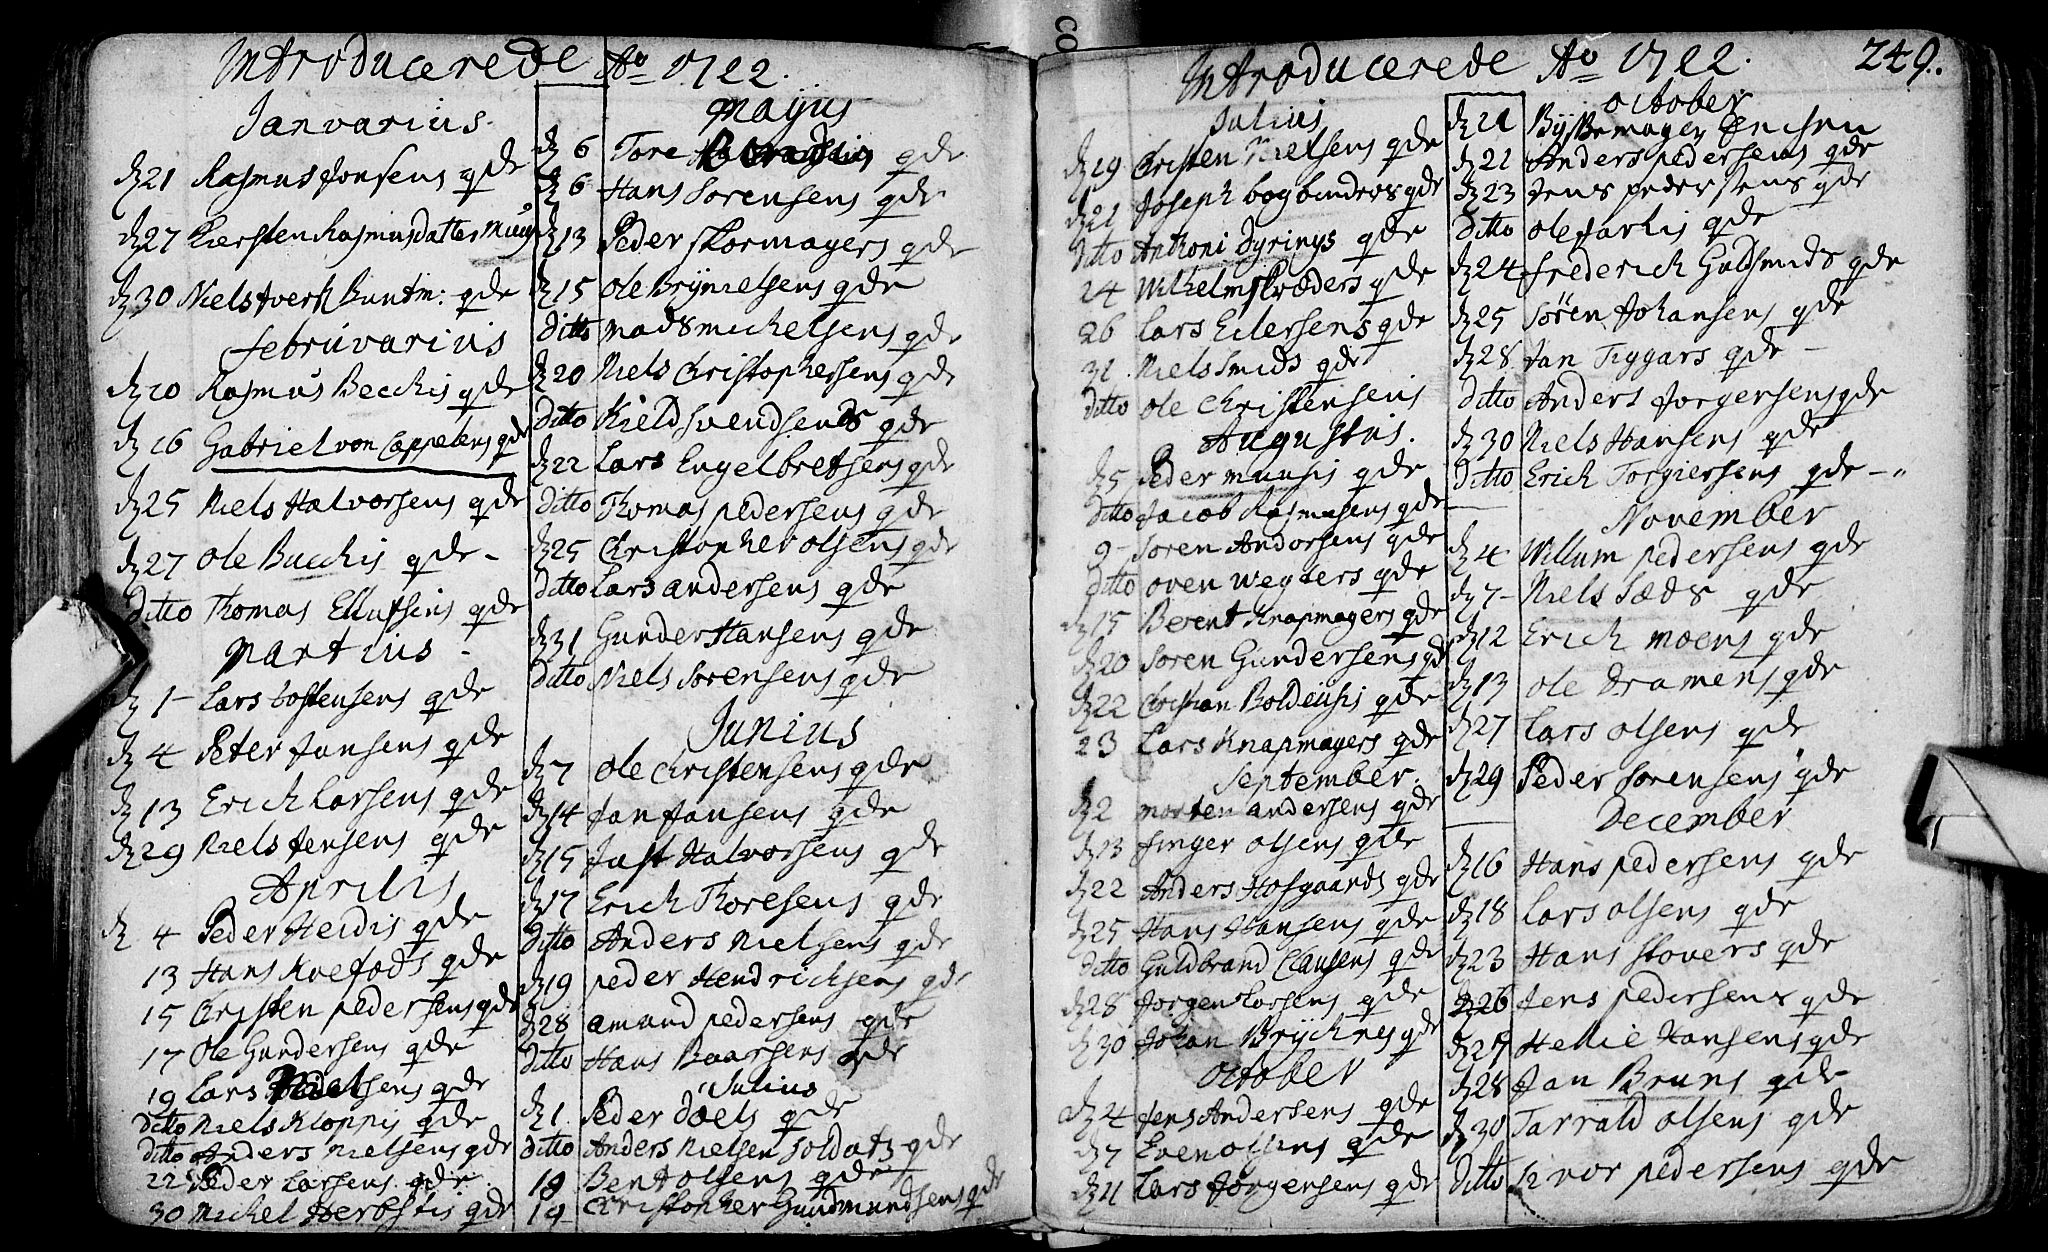 Introducerede Ao 1722.
Ianvarius.
dz 21 Rasmus Jonsens qde
dz 27 Kiersten Rasmusdatter
dz 30 Niels tverk Buntm: qde
februvarius
dz 10 Rasmus Becchis qde
dz 16 Gabriel von Cappelens qde
dz 25 Niels Halvorsens qde
dz 27 Ole Bucchis qde -
Ditto Thomas Ellufsens qde
Martius -
dz 1 - Lars tostensens qde
dz 4 Peter Jansens qde
dz 13 Erich Larsens qde
dz 29 Niels Jensens qde
Aprilis
dz 4 Peder Heidis qde
13 Hans Koefods qde
15 Christen pedersens qde
17 Ole Gundersens qde
19 Lars Nielsens qde
ditto Niels Kloppis qde
ditto Anders Nielsens qde
22 Peder Larsens qde
30 Michel Herbstis qde
Majus
dz 6 Tore qde
dz 6 Hans Sorensens qde
dz 13 Peder skormagers qde
dz 15 Ole Brynielsens qde
Ditto Mads michelsens qde
dz 20 Niels Christophersens qde
Ditto Kield svendsends qde
dz 22 Lars Engelbretsens qde
Ditto Thomas pedersens qde
dz 25 Christopher olsens qde
Ditto Lars andersens qde
dz 31 Gunder Hansens qde
Ditto Niels Sorensens qde
Junius
dz 7 Ole Christensens qde
dz 14 Jan Jansens qde
dz 15 Just Halvorsens qde
dz 17 Erich Thoresens qde
Ditto Anders Nielsens qde
dz 19 peder Hendrichsens qde
dz 28 amund pedersens qde
Ditto Hans Baarsens qde
Julius
dz 1. Peder doels qde
Ditto Anders Nielsen soldats qde
19 Bent olsens qde
19 Christopher Gundmundsens qde
Introducerede Ao 1722. 249.
Julius
dz 19 Christen Nielsens qde
dz 21 Joseph bogbinders qde
ditto Anthoni dyrings qde
24 Wilhelm skræders qde
26 Lars Eilersens qde
31. Niels Smids qde
ditto Ole Christensens
Augustus.
dz 5 Peder munsis qde
ditto Jacob Rasmusens qde
9 - Soren Andorsens qde
ditto oven weyters qde
dz 15 Berent Knapmagers qde
dz 20 Soren Gundersens qde
dz 22 Christian Boldeusis qde
23 Lars Knapmagers qde
September.
dz 2 morten andersens qde
dz 13 Jnger olsens qde
dz 22 Anders Hofgaards qde
dz 25 Hans Hansens qde
ditto Guldbrand Clausens qde
dz 28 Jorgen Larsens qde
dz 30 Johan Brychnes qde
October
dz 4 Jens Andersens qde
dz 7 Even olsens qde
dz 11 Lars Jorgensens qde
October
dz 21 Jensen
dz 21 Anders pedersens qde
dz 23 Jens pedersens qde
Ditto Ole farlis qde
dz 24 frederich Guldsmids qde
dz 25 Sören Johansens qde
dz 28. Jan Tryggars qde -
Ditto Anders Jorgersens qde
dz 30 Niels Hansens qde
Ditto Erich Torgiersens qde -
November
dz 4 Willum pedersens qde
dz 7 - Niels Sæds qde
dz 12 Erich moens qde
dz 13 Ole Dramens qde
dz 27 Lars olsens qde
dz 29 Peder Sorensens qde
December
dz 16 Hans pedersens qde
dz 18 Lars olsens qde
dz 23 Hans skovers qde
dz 26 Jens pedersens qde
dz 27 Hellie Hansens qde
dz 28 Jan Bruns qde
dz 30 Tarrald olsens qde
Ditto Iver pedersens qde